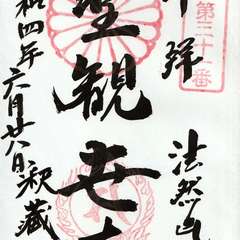 第三十一番
拝
法然
聖観世
和四年六月廿八日 釈蔵